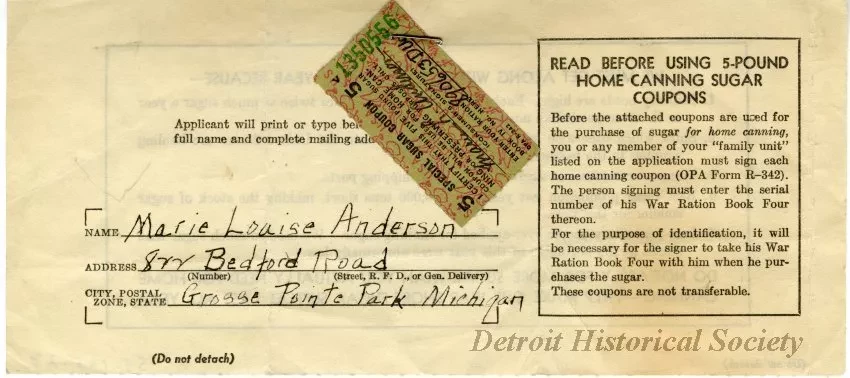 Applicant will print or type
full name and complete mailing
NAME Marie Louise Anderson
ADDRESS 822 Bedford Road
(Number) (Street, R. F. D., or Gen. Delivery)
CITY, POSTAL
ZONE, STATE Grosse Pointe Park Michigan
(Do not detach)
1350556
5 SPECIAL SUGAR COUPON 5
890653DW
READ BEFORE USING 5-POUND
HOME CANNING SUGAR
COUPONS
Before the attached coupons are used for
the purchase of sugar for home canning,
you or any member of your “family unit”
listed on the application must sign each
home canning coupon (OPA Form R–342).
The person signing must enter the serial
number of his War Ration Book Four
thereon.
For the purpose of identification, it will
be necessary for the signer to take his War
Ration Book Four with him when he pur-
chases the sugar.
These coupons are not transferable.
Detroit Historical Society